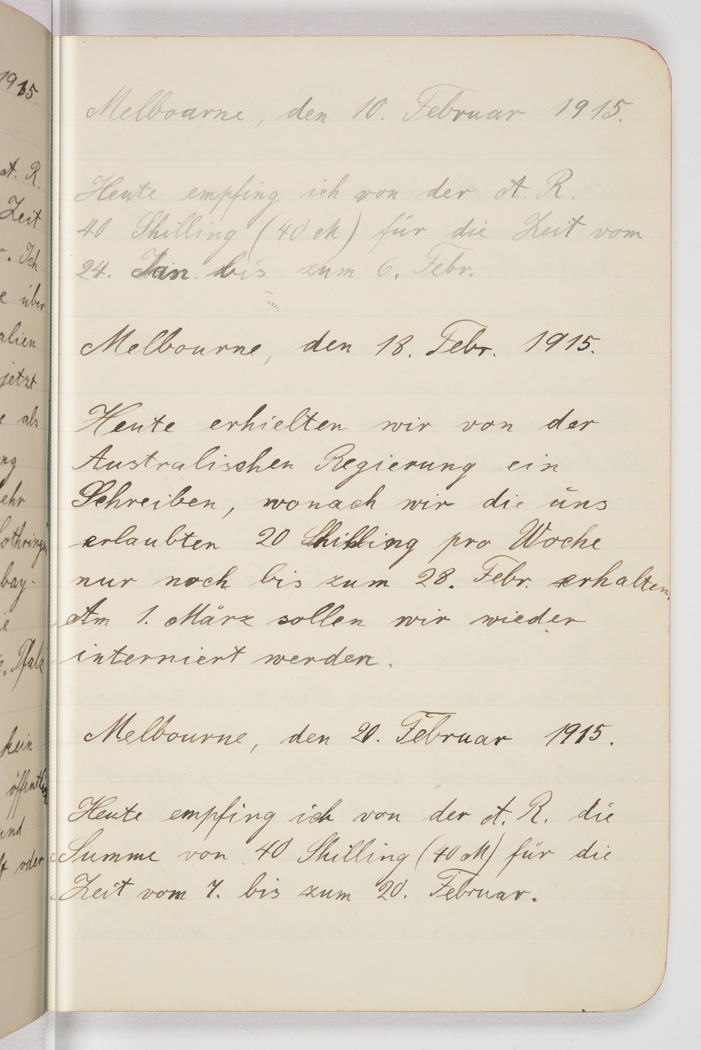 1915.
A. R.
Zeit
r. Ich
e über
alien
jetzt
e als
ng
ehr
othringen
bay-
ie
. Pfalz
kein
öffentli
und
ft oder
Melboarne, den 10. Februar 1915.
Heute empfing ich von der A. R.
40 Shilling (40 M) für die Zeit vom
24. Jan. bis zum 6. Febr.
Melbourne, den 18. Febr. 1915.
Heute erhielten wir von der
Australischen Regierung ein
Schreiben, wonach wir die uns
erlaubten 20 Shilling pro Woche
nur noch bis zum 28. Febr. erhalten.
Am 1. März sollen wir wieder
interniert werden.
Melbourne, den 20. Februar 1915.
Heute empfing ich von der A. R. die
Summe von 40 Shilling (40 M) für die
Zeit vom 7. bis zum 20. Februar.